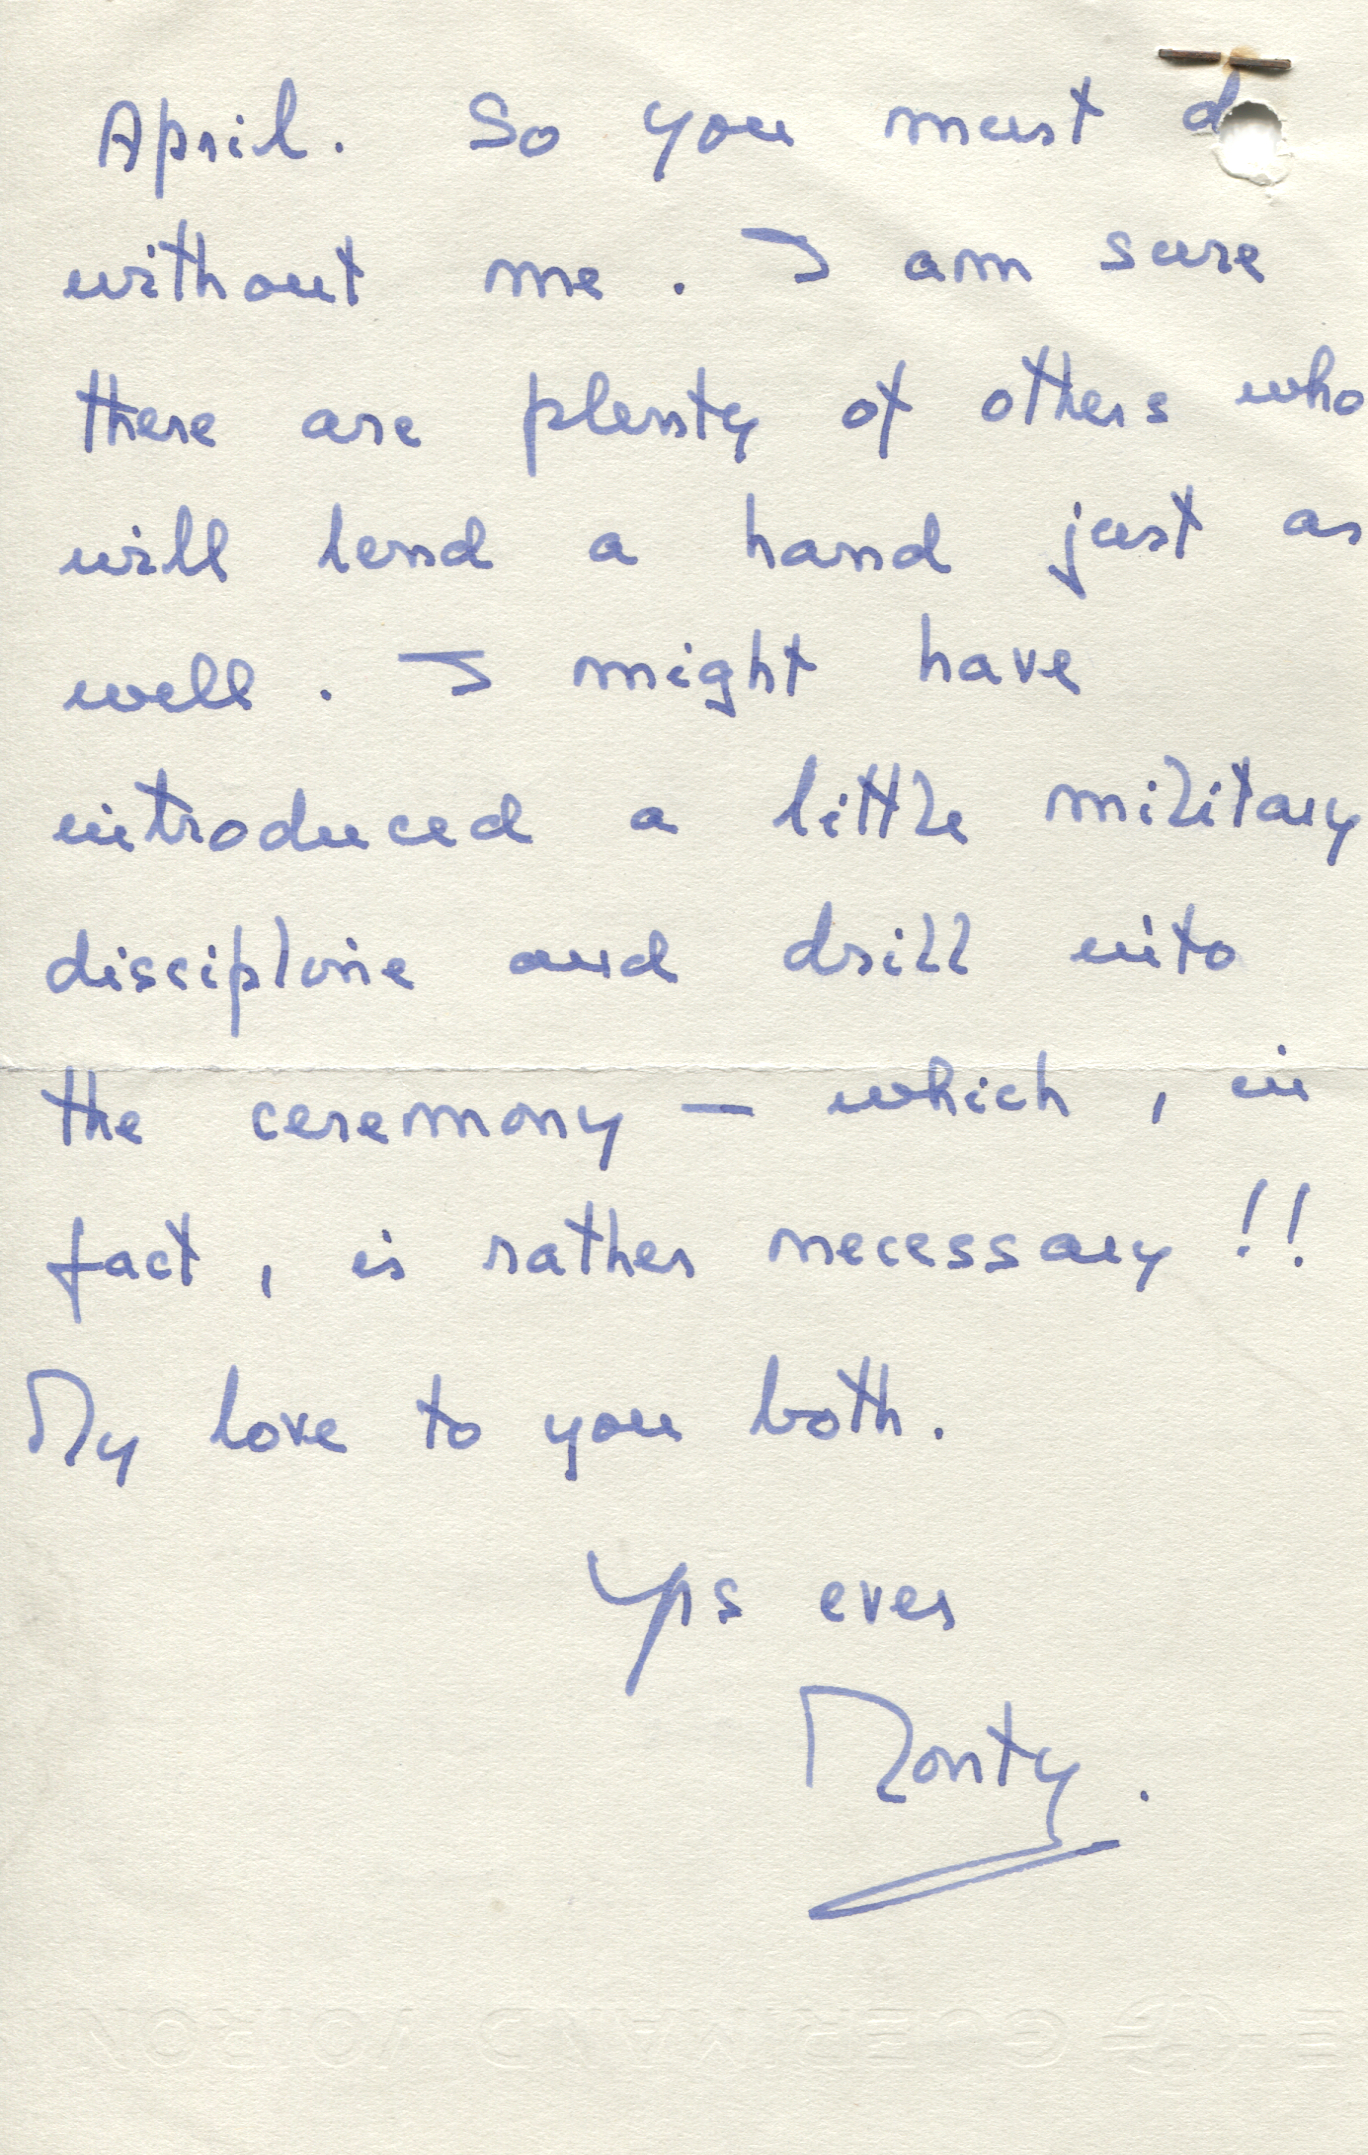 April. So you must d
without me. I am sure
there are plenty of others who
will lend a hand just as
well. I might have
introduced a little military
discipline and drill into
the ceremony — which, in
fact, is rather necessary!!
My love to you both.
Yrs ever
Monty.